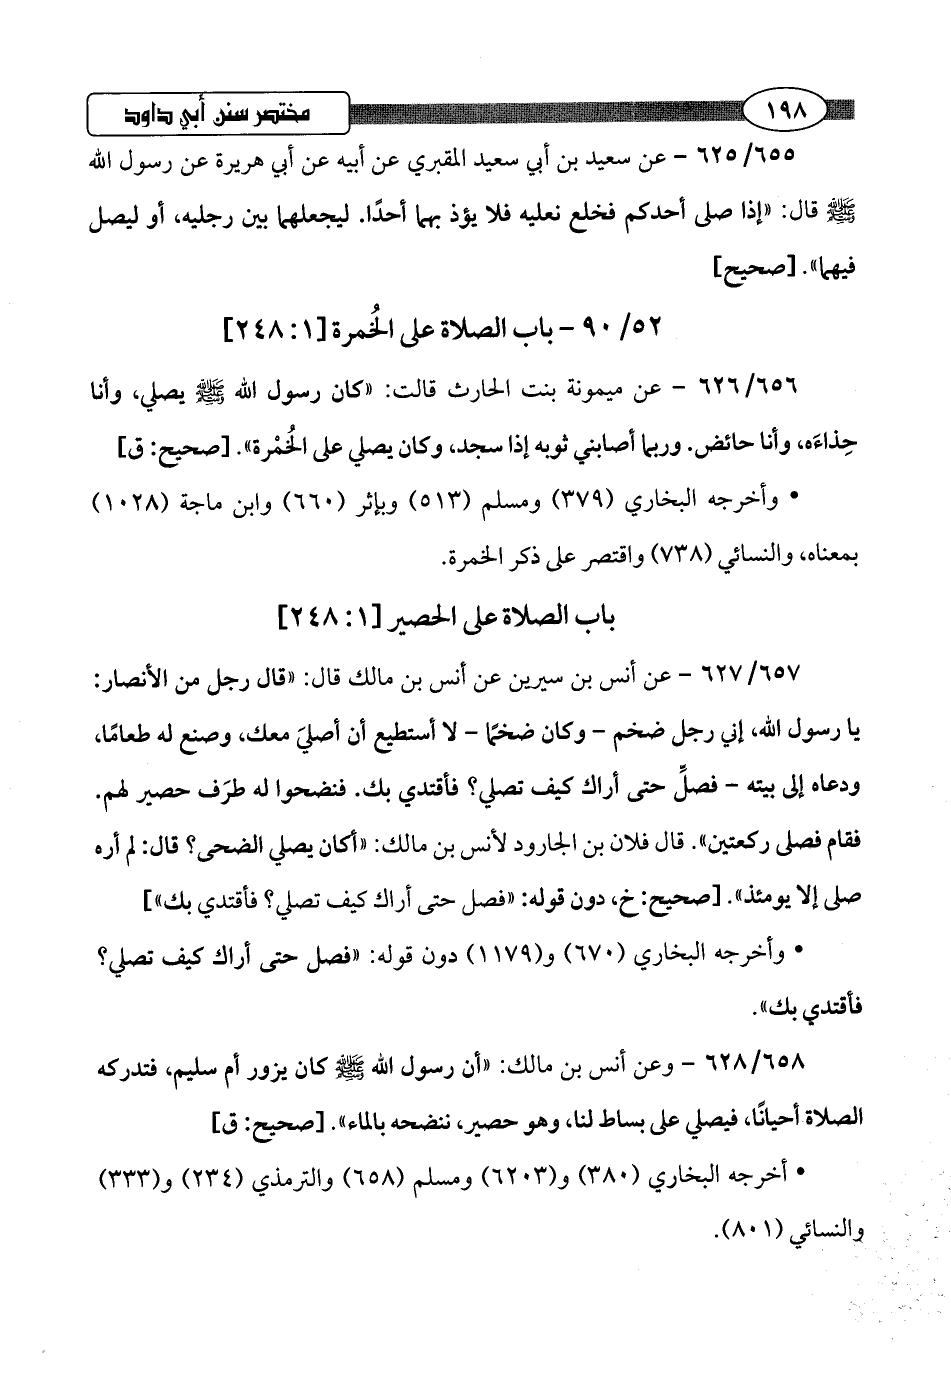 ١٩٨
مختصر سنن أبي داود
٦٢٥/٦٥٥ – عن سعيد بن أبي سعيد المقبري عن أبيه عن أبي هريرة عن رسول الله
ﷺ قال: «إذا صلى أحدكم فخلع نعليه فلا يؤذ بهما أحدًا. ليجعلهما بين رجليه، أو ليصل
فيهما». [صحيح]
٩٠/٥٢ – باب الصلاة على الخُمرة [١: ٢٤٨]
٦٢٦/٦٥٦ – عن ميمونة بنت الحارث قالت: «كان رسول الله ﷺ يصلي، وأنا
حِذاءَه، وأنا حائض. وربما أصابني ثوبه إذا سجد، وكان يصلي على الخُمْرة». [صحيح: ق]
• وأخرجه البخاري (٣٧٩) ومسلم (٥١٣) وبإثر (٦٦٠) وابن ماجة (١٠٢٨)
بمعناه، والنسائي (٧٣٨) واقتصر على ذكر الخمرة.
باب الصلاة على الحصير [١: ٢٤٨]
٦٢٧/٦٥٧ – عن أنس بن سيرين عن أنس بن مالك قال: «قال رجل من الأنصار:
يا رسول الله، إني رجل ضخم – وكان ضخمًا – لا أستطيع أن أصليَ معك، وصنع له طعامًا،
ودعاه إلى بيته – فصلِّ حتى أراك كيف تصلي؟ فأقتدي بك. فنضحوا له طرَف حصير لهم.
فقام فصلى ركعتين». قال فلان بن الجارود لأنس بن مالك: «أكان يصلي الضحى؟ قال: لم أره
صلى إلا يومئذ». [صحيح: خ، دون قوله: «فصل حتى أراك كيف تصلي؟ فأقتدي بك»]
• وأخرجه البخاري (٦٧٠) و(١١٧٩) دون قوله: «فصل حتى أراك كيف تصلي؟
فأقتدي بك».
٦٢٨/٦٥٨ – وعن أنس بن مالك: «أن رسول الله ﷺ كان يزور أم سليم، فتدركه
الصلاة أحيانًا، فيصلي على بساط لنا، وهو حصير، ننضحه بالماء». [صحيح: ق]
• أخرجه البخاري (٣٨٠) و(٦٢٠٣) ومسلم (٦٥٨) والترمذي (٢٣٤) و(٣٣٣)
والنسائي (٨٠١).